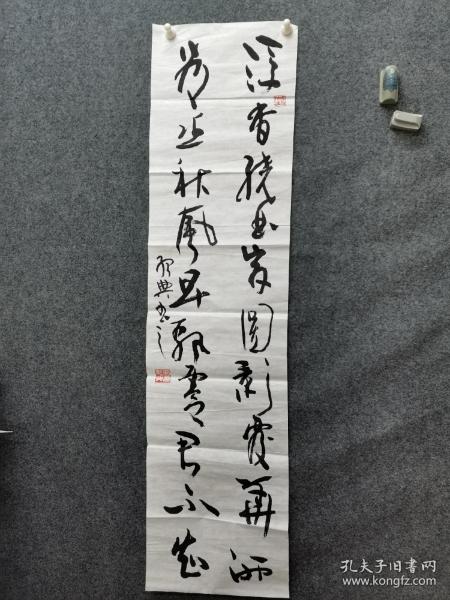 浮香绕曲岸圆影覆华池
常恐秋风早飘零君不知
典书
孔夫子旧书网
www.kongfz.com